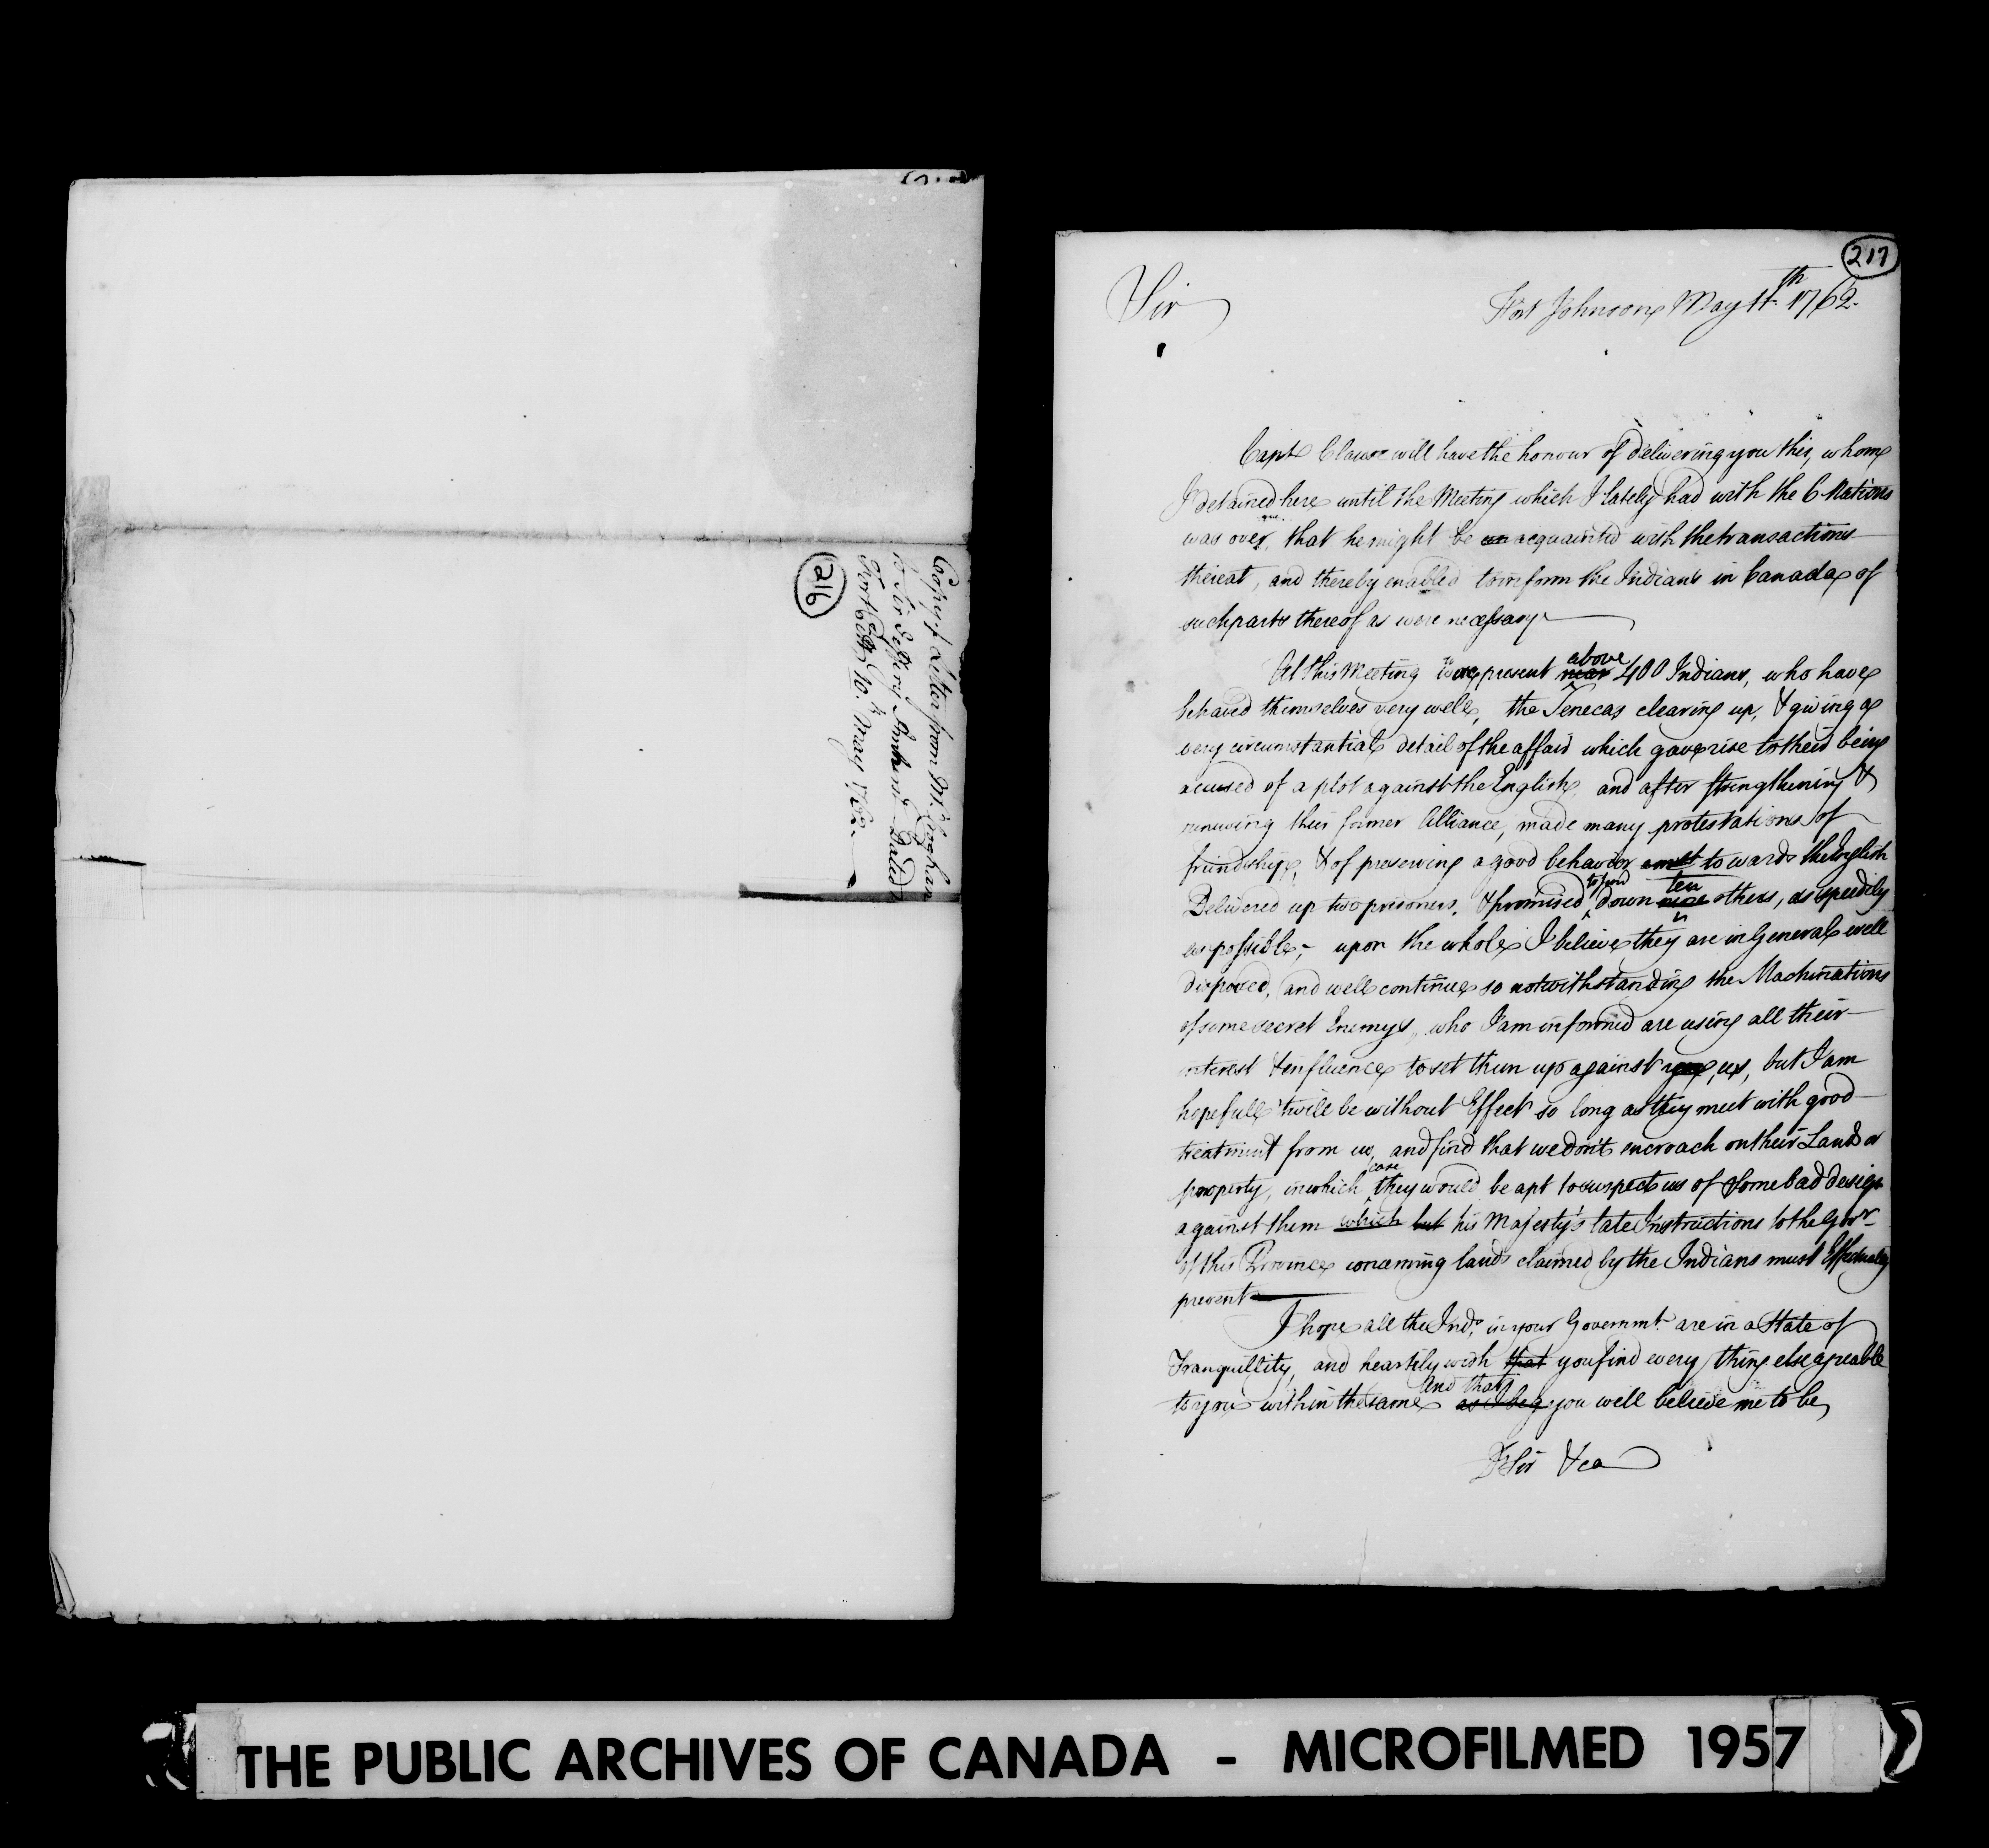 Copy of Letter from Mr. Croghan
to Sir Jeffery Amherst Dated
Fort Pitt 10th May 1762
216
217
Sir
Fort Johnson May 11th 1762.
Capt Clause will have the honour of delivering you this, whom
I detained here until the Meeting which I lately had with the 6 Nations
was over, that he might be acquainted with the transactions
thereat, and thereby enabled to inform the Indians in Canada of
such parts thereof as were necessary
At this Meeting were present near above 400 Indians, who have
behaved themselves very well, the Senecas clearing up, & giving a
very circumstantial detail of the affair which gave rise to their being
acused of a plot against the English, and after strengthening &
renewing their former Alliance, made many protestations of
friendship, & of preserving a good behavior towards the English
Delivered up two prisoners, & promised to send down nine ten others, as speedily
as possible;- upon the whole I believe they are in General well
disposed, and will continue so notwithstanding the Machinations
of some secret Enemys, who I am informed are using all their
interest & influence to set them up against you, us, but I am
hopefull twill be without Effect so long as they meet with good
treatment from us, and find that we don't encroach on their Lands or
property, in which case they would be apt to suspect us of some bad design
against them which but his Majesty's late Instructions to the Govr.
of this Province concerning lands claimed by the Indians must Effectually
prevent
I hope all the Inds. in your Governmt. are in a State of
Tranquillity, and heartily wish that you find every thing else agreable
to you within the same as I beg and that you will believe me to be,
Sir &ca
THE PUBLIC ARCHIVES OF CANADA - MICROFILMED 1957